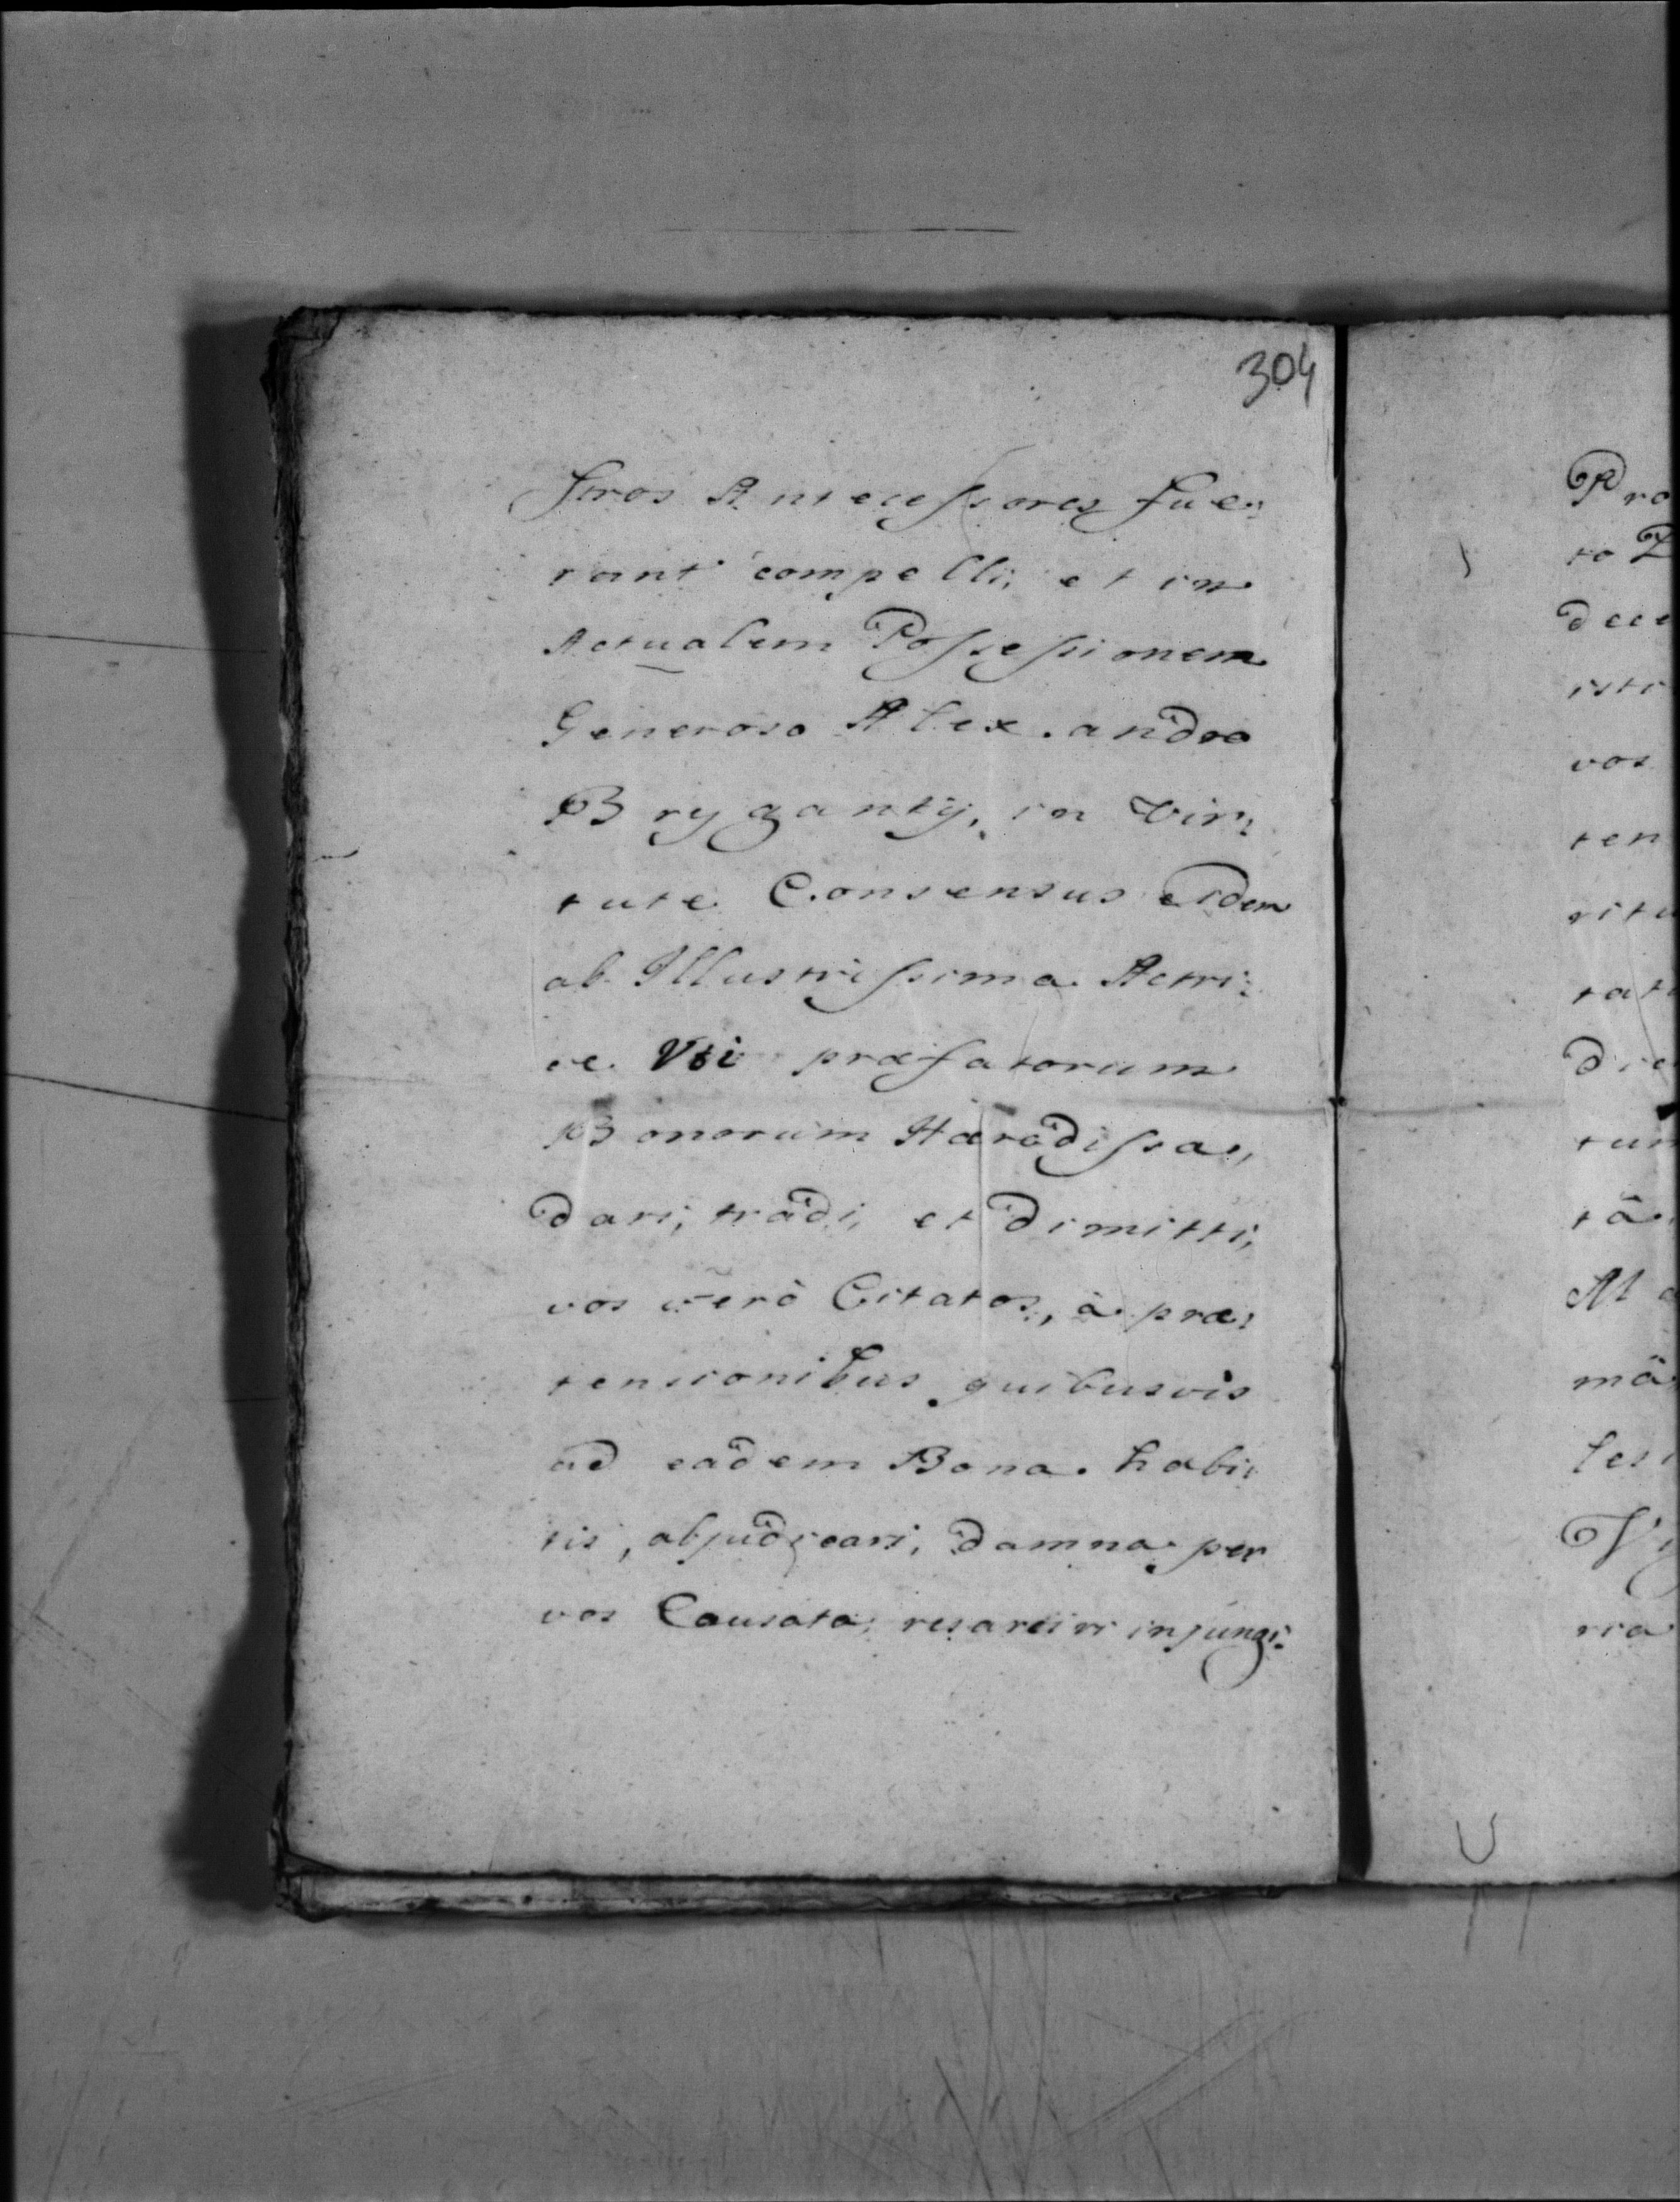 304
stros Antecessores fue:
rant compelli, et in
Actualem Possessionem
Generoso Alexandro
Bryganty, in vir:
tute Consensus eidem
ab Illustrissima Actri:
ce Uti præfatorum
Bonorum Hæredissa,
dari, tradi, et dimitti,
vos verò Citatos, à præ:
tensionibus quibusvis
ad eadem Bona habi:
tis, abjudicari, damna per
vos Causata, resarciri injungi:
Pro
to
dece
isti
vos
ten
ritu
tat
die
tum
tâ
M
mâ
les
ria